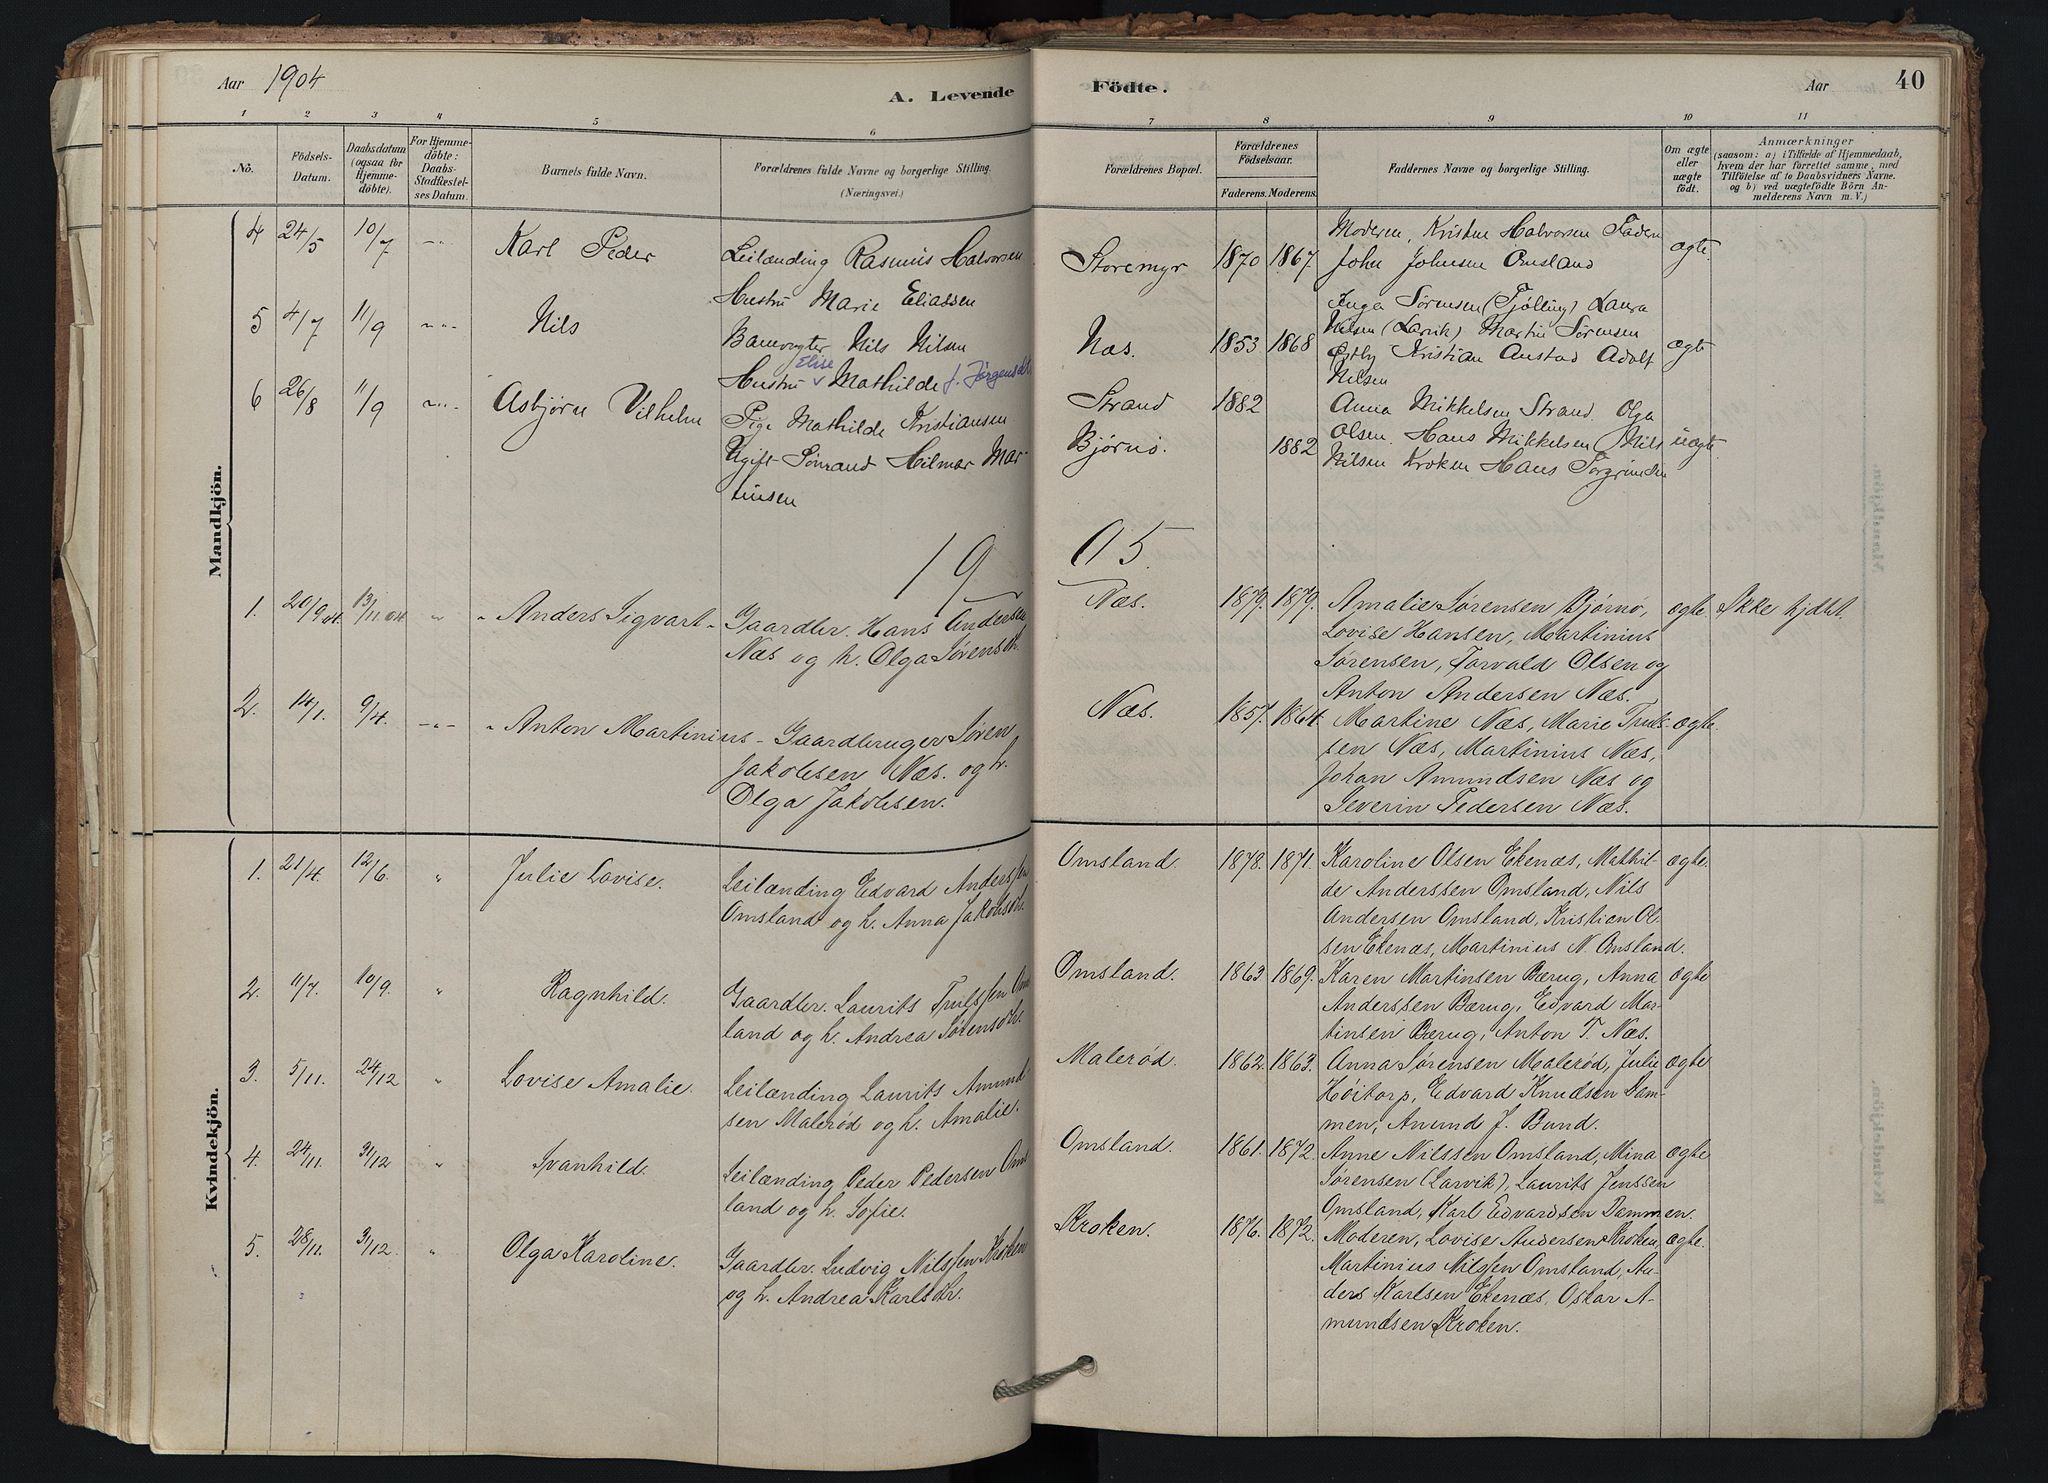 Aar 1904
A. Levende
Födte.
Aar
40
1 2 3 4 5 6 7 8 9 10 11
No.
Födsels-
Datum.
Daabsdatum
(ogsaa for
Hjemme-
döbte).
For Hjemme-
döbte:
Daabs-
Stadfæstel-
ses Datum.
Barnets fulde Navn.
Forældrenes fulde Navne og borgerlige Stilling.
(Næringsvei.)
Forældrenes Bopæl.
Forældrenes
Födselsaar.
Faderens. Moderens.
Faddernes Navne og borgerlige Stilling.
Om ægte
eller
uægte
født.
Anmærkninger
(saasom: a) i Tilfælde af Hjemmedaab,
hvem der har forrettet samme, med
Tilföielse af to Daabsvidners Navne.
og b) ved uægtefödte Börn An-
melderens Navn m. V.)
Mandkjön.
4 24/5 10/7 -"- Karl Peder
Leilænding Rasmus Halvorsen
Hustru Marie Eliassen
Storemyr 1870 1867.
Moderen, Kristine Halvorsen
John Johnsen Omsland
ægte.
5 4/7 11/9 -"- Nils
Banevogter Nils Nilsen
Elise
Hustru v Mathilde f. Jørgensdt.
Næs. 1853 1868
Inga Sørensen (Tjølling) Laura
Nilsen (Larvik) Martin Sørensen
Østby Kristian Austad Adolf
Nilsen
ægte
6 26/8 11/9 -"- Asbjørn Vilhelm
Pige Mathilde Kristiansen
Ugift Sømand Hilmar Mar-
tinsen
Strand 1882
Bjørnø. 1882
Anna Mikkelsen Strand Olga
Olsen. Hans Mikkelsen Nils
Nilsen Kroken Hans Torgrimsen
uægte.
19 05.
1. 20/9 04. 13/11 04. " Anders Sigvart
Gaardbr. Hans Andersen
Næs og h. Olga Sørensdt.
Næs. 1879. 1879.
Amalie Sørensen Bjørnø,
Lovise Hansen, Martinius
Sørensen, Torvald Olsen og
Anton Andersen Næs.
ægte. Ikke hjdbt.
2. 14/1. 9/4. -"- Anton Martinius
Gaardbruger Søren
Jakobsen Næs. og h.
Olga Jakobsen.
Næs. 1857. 1864.
Martine Næs, Marie Truls-
sen Næs, Martinius Næs,
Johan Amundsen Næs og
Severin Pedersen Næs.
ægte.
Kvindekjön.
1. 21/4. 12/6. " Julie Lovise.
Leilænding Edvard Anderssen
Omsland og h. Anna Jakobsdt.
Omsland. 1878. 1871.
Karoline Olsen Ekenæs, Mathil-
de Anderssen Omsland, Nils
Andersen Omsland, Kristian Ol-
sen Ekenæs, Martinius N. Omsland.
ægte.
2. 11/7. 10/9. " Ragnhild.
Gaardbr. Laurits Trulssen Oms
land og h. Andrea Sørensdt.
Omsland. 1863 1869.
Karen Martinsen Bærug, Anna
Anderssen Bærug, Edvard Mar-
tinsen Bærug, Anton T. Næs.
ægte
3. 5/11. 24/12 " Lovise Amalie.
Leilænding Laurits Amund-
sen Malerød og h. Amalie.
Malerød. 1862. 1863.
Anna Sørensen Malerød, Julie
Høitorp, Edvard Knudsen Dam-
men, Amund J. Bund.
ægte
4. 24/11. 31/12 " Svanhild.
Leilænding Peder Pedersen Oms
land og h. Sofie.
Omsland. 1861. 1872.
Anne Nilssen Omsland, Mina
Sørensen (Larvik), Laurits Jenssen
Omsland, Karl Edvardsen Dammen.
ægte
5. 28/11. 31/12. " Olga Karoline.
Gaardbr. Ludvig Nilssen Kroken
og h. Andrea Karlsdt.
Kroken. 1876. 1872.
Moderen, Lovise Andersen Kroken,
Martinius Nilssen Omsland, An-
ders Karlsen Ekenæs, Oskar A-
mundsen Kroken.
ægte.